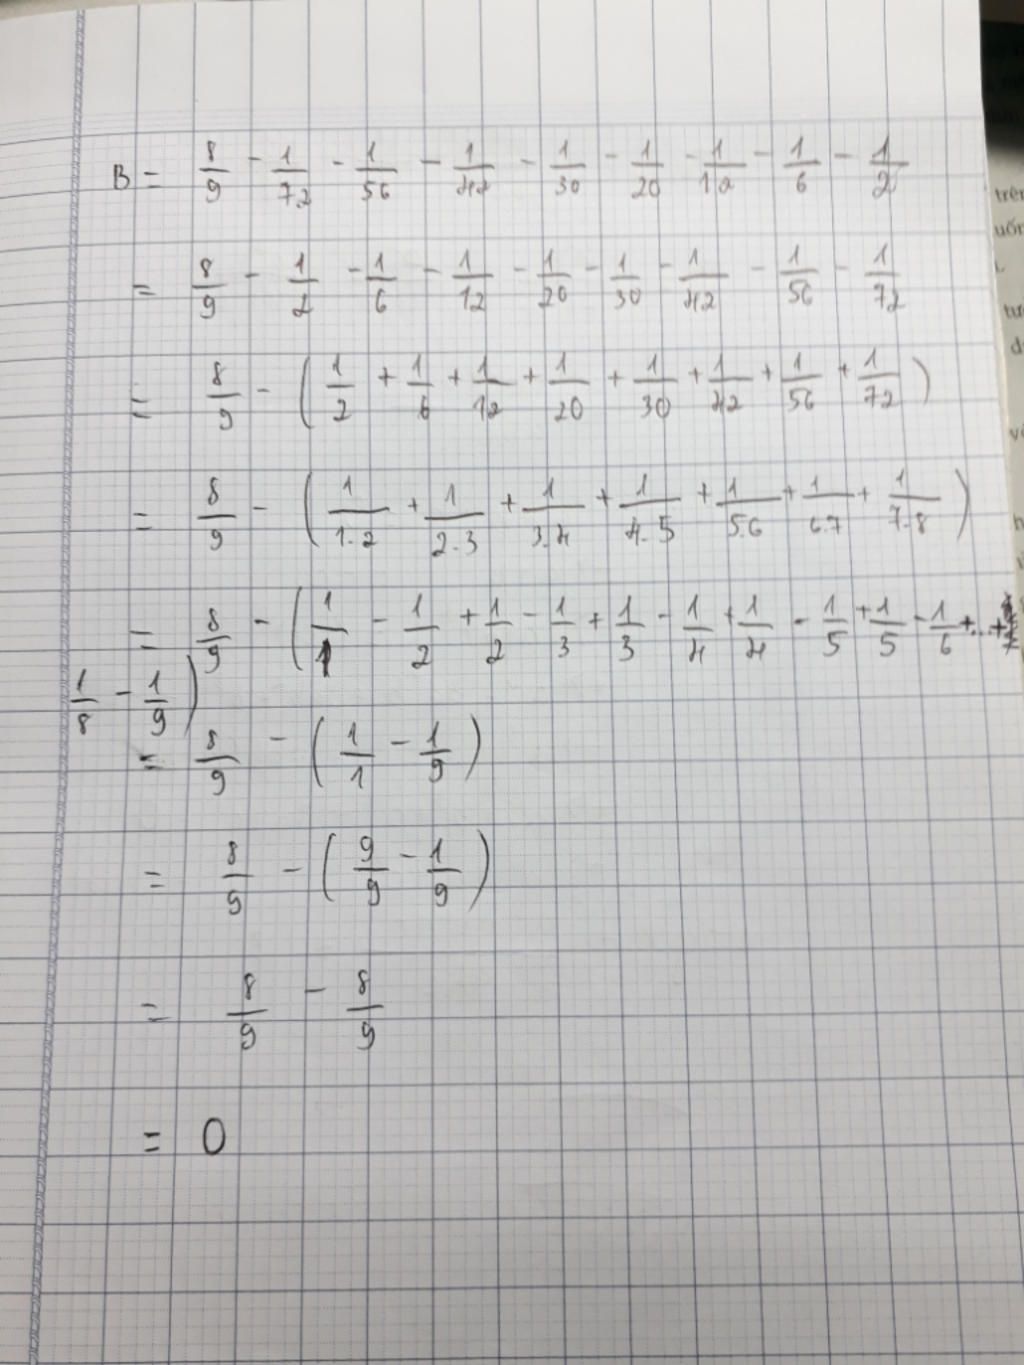 B = 8/9 - 1/72 - 1/56 - 1/42 - 1/30 - 1/20 - 1/12 - 1/6 - 1/2
= 8/9 - 1/2 - 1/6 - 1/12 - 1/20 - 1/30 - 1/42 - 1/56 - 1/72
= 8/9 - ( 1/2 + 1/6 + 1/12 + 1/20 + 1/30 + 1/42 + 1/56 + 1/72 )
= 8/9 - ( 1/1.2 + 1/2.3 + 1/3.4 + 1/4.5 + 1/5.6 + 1/6.7 + 1/7.8 )
= 8/9 - ( 1/1 - 1/2 + 1/2 - 1/3 + 1/3 - 1/4 + 1/4 - 1/5 + 1/5 - 1/6 + ... +
1/8 - 1/9 )
= 8/9 - ( 1/1 - 1/9 )
= 8/9 - ( 9/9 - 1/9 )
= 8/9 - 8/9
= 0